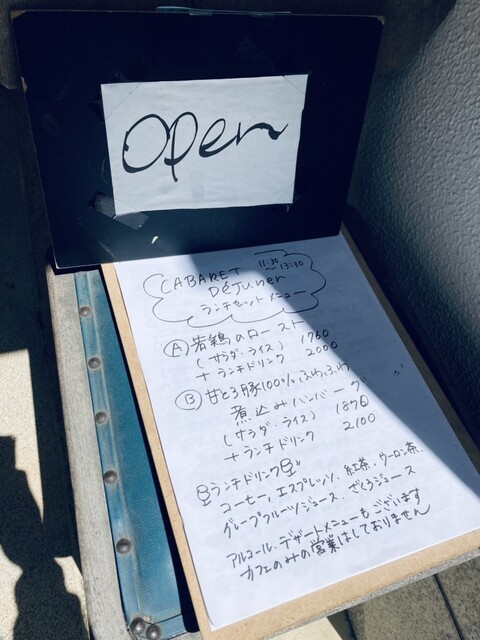 Open
CABARET 11:30
DéJuner ~13:30
ランチセットメニュー
Ⓐ若鶏のロースト
(サラダ・ライス) 1760
+ランチドリンク 2000
Ⓑ甘とろ豚100%ふわふわ
煮込みハンバーグ
(サラダ・ライス) 1870
+ランチドリンク 2100
ランチドリンク
コーヒー、エスプレッソ、紅茶、ウーロン茶、
グレープフルーツジュース、ざくろジュース
アルコール、デザートメニューもございます
カフェのみの営業はしておりません